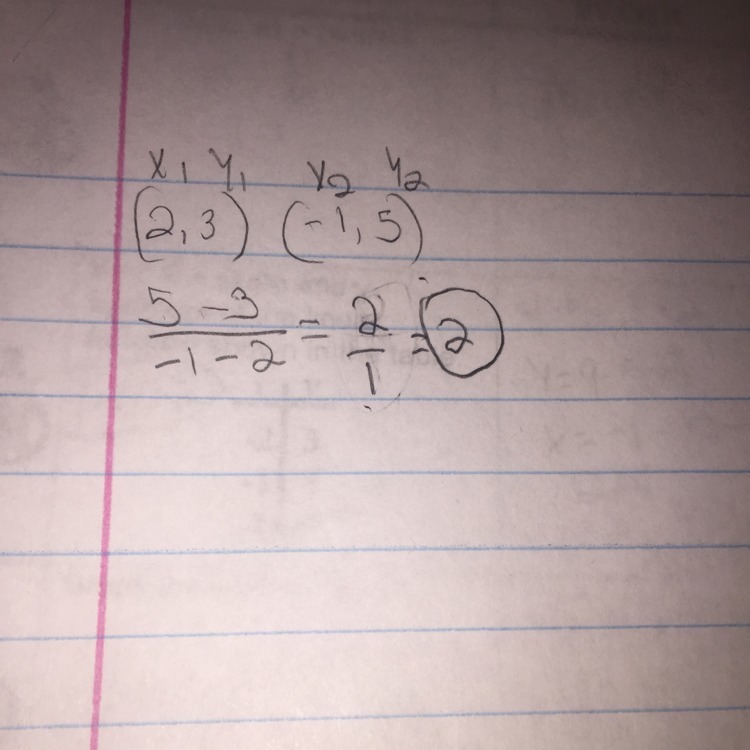 x₁ y₁ x₂ y₂
(2,3) (-1,5)
5-3/-1-2 = 2/1 = 2